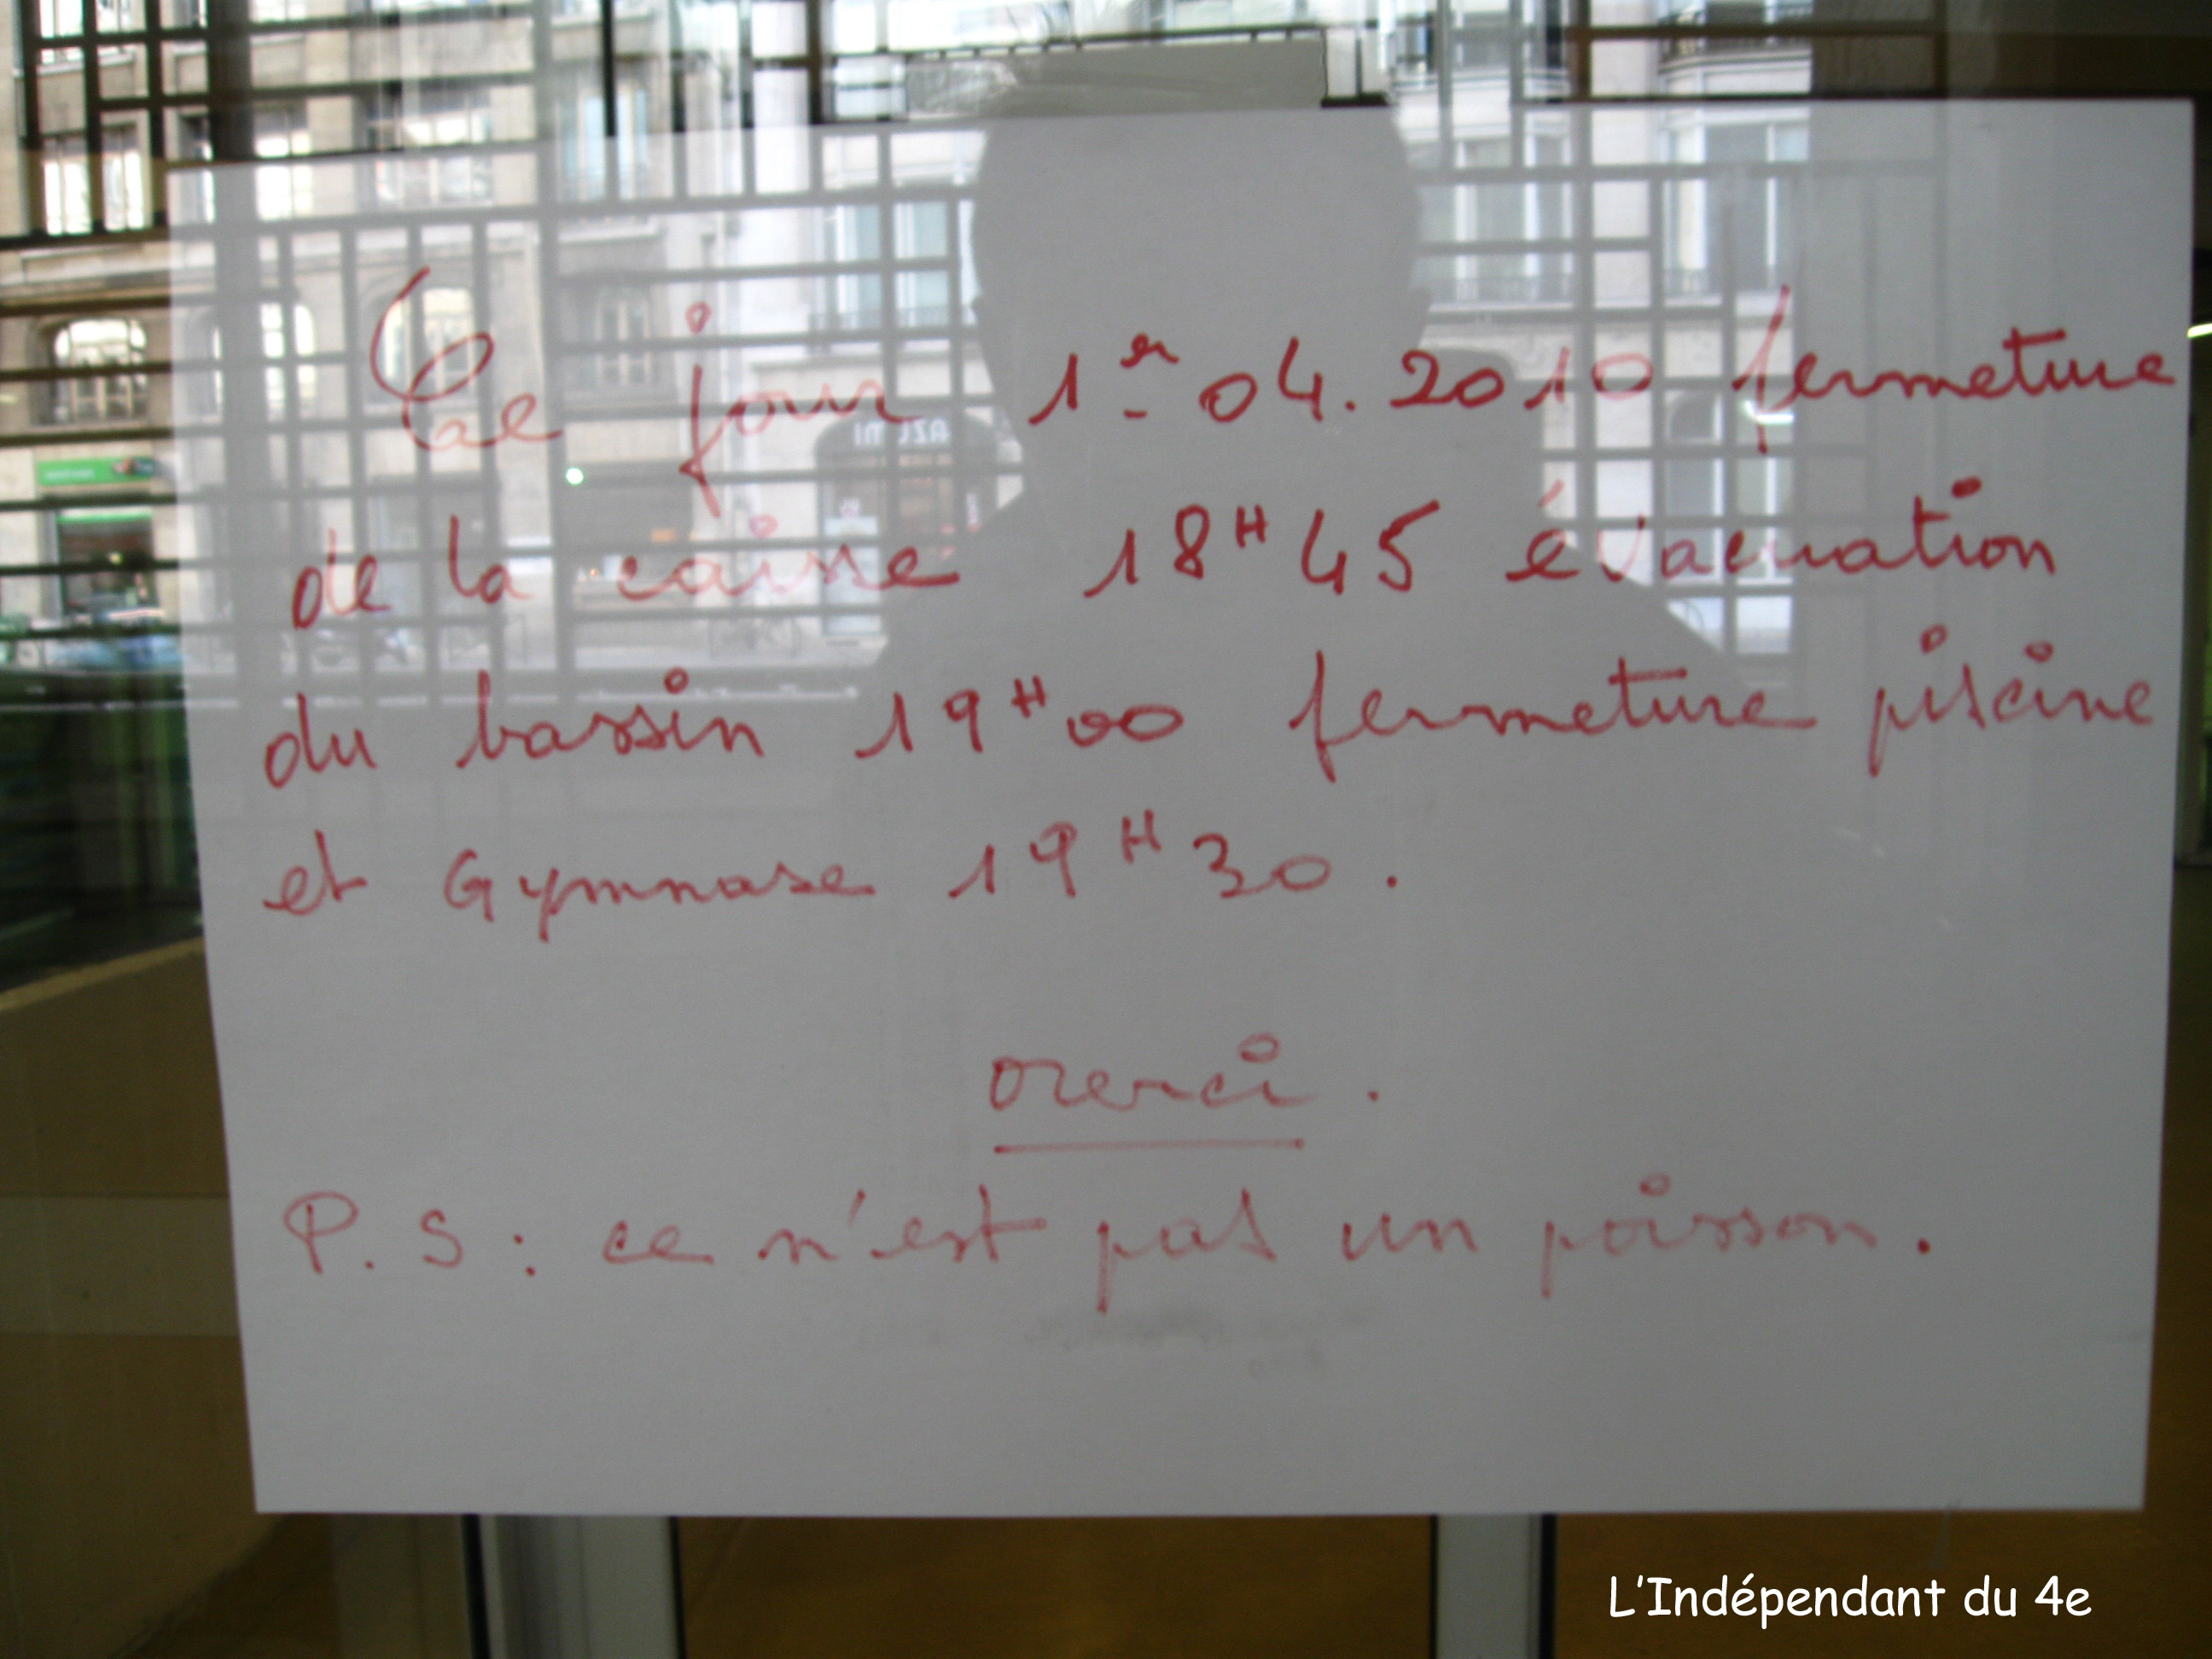 Ce jour 1er 04.2010 fermeture
de la caisse 18H45 évacuation
du bassin 19H00 fermeture piscine
et Gymnase 19H30.
Merci.
P.S: ce n'est pas un poisson.
AZUMI
L'Indépendant du 4e